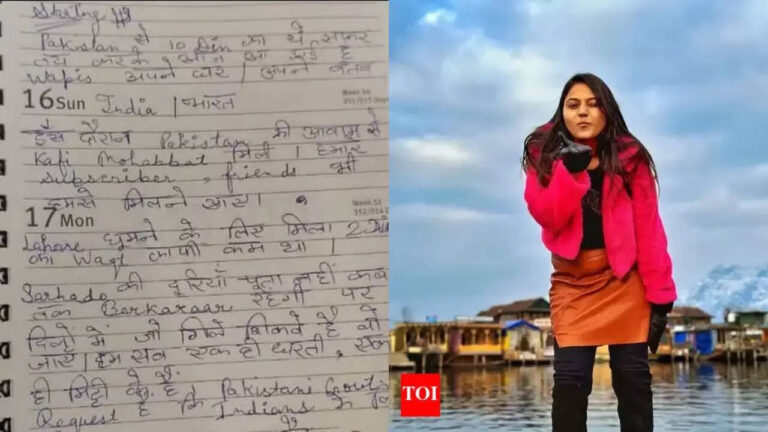 Starting
Pakistan से 10 Din का ये सफर
तय करके आज आ गई है
Wapis अपने घर । अपने वतन
Week 50
16 Sun India । भारत
इस दौरान Pakistan की आवाम से
Kafi Mohabbat मिली । हमारे
Subscriber, friends भी
हमसे मिलने आए ।
Week 51
17 Mon
Lahore घुमने के लिए मिला 2 दिन
का Waqt काफी कम था ।
Sarhado की दूरियाँ पता नहीं कब
तक Barkaraar रहेगी पर
दिलों में जो गिले शिकवे है वो
जाए । हम सब एक ही धरती, एक
ही मिट्टी के है । Pakistani
Request है कि Indians के
TOI